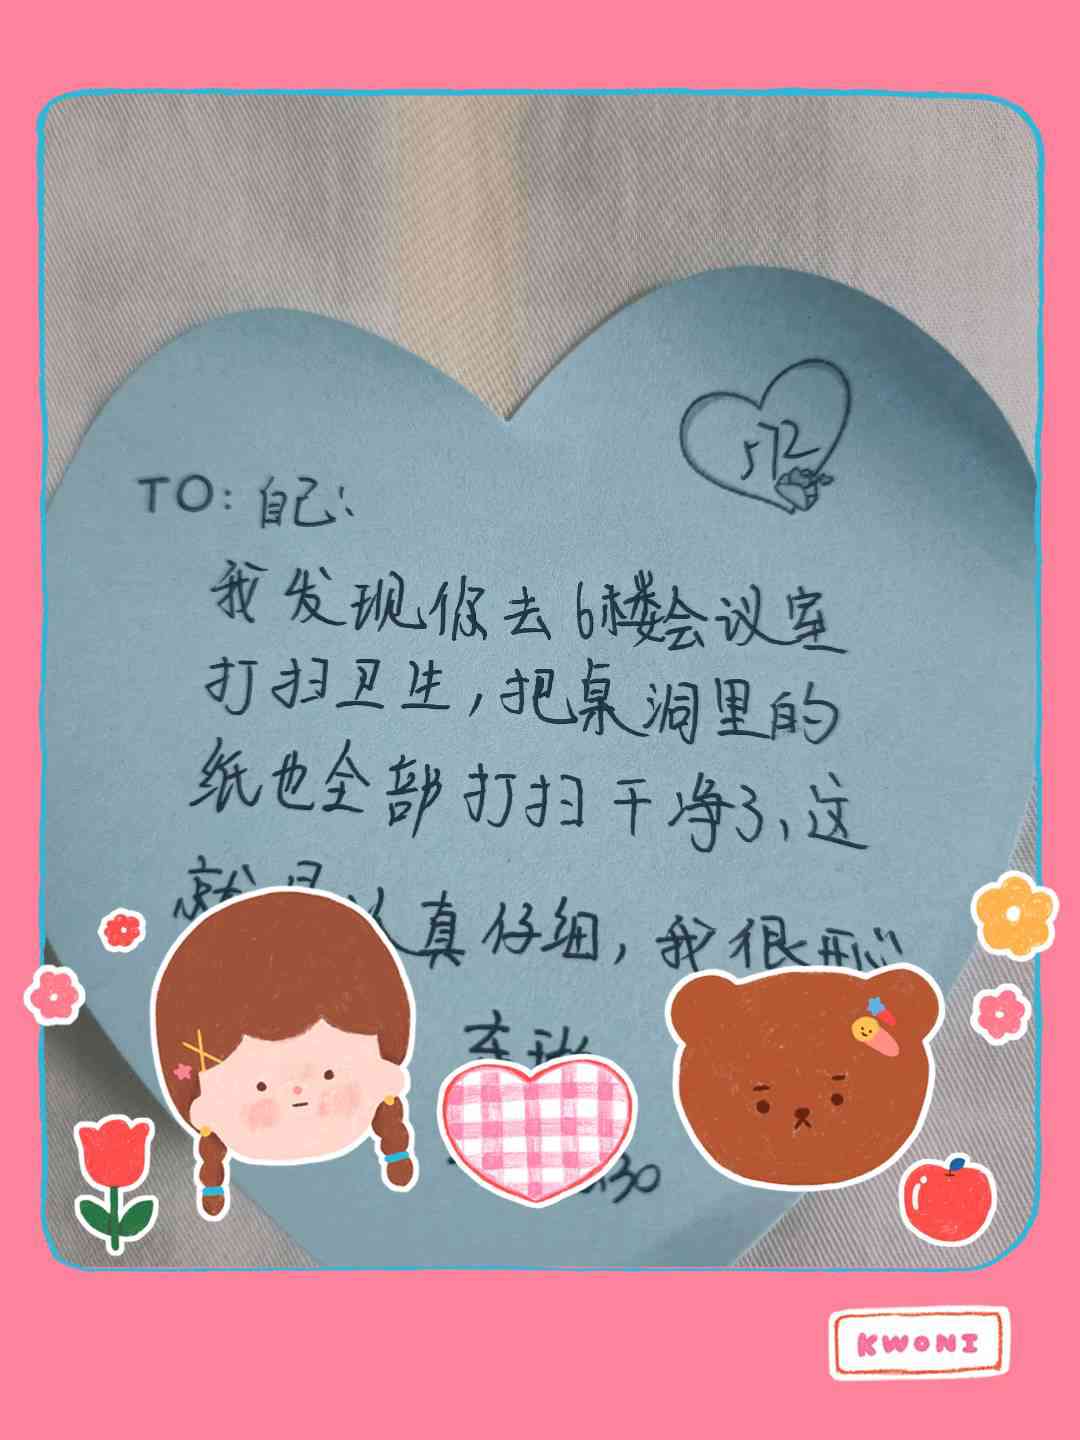 572
TO:自己:
我发现你去6楼会议室
打扫卫生,把桌洞里的
纸也全部打扫干净了、这
就是认真仔细,我很开心
30
KWONI